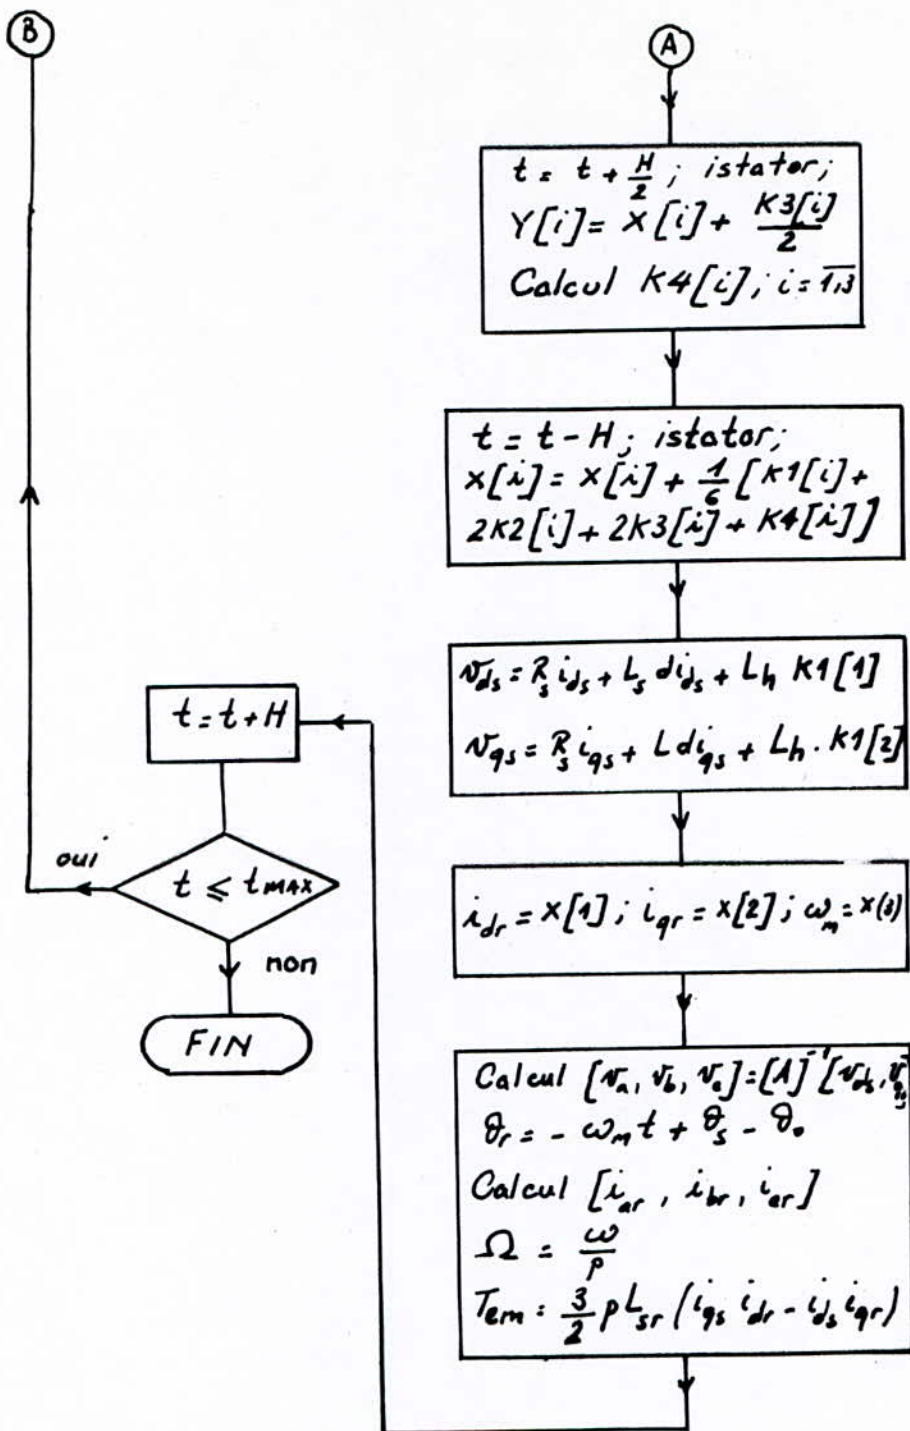 B
A
t = t + H/2 ; istator;
Y[i] = X[i] + K3[i]/2
Calcul K4[i]; i = 1,3
t = t - H; istator;
x[i] = x[i] + 1/6 [K1[i] +
2K2[i] + 2K3[i] + K4[i]]
v_ds = R_s i_ds + L_s di_ds + L_h K1[1]
v_qs = R_s i_qs + L di_qs + L_h . K1[2]
i_dr = X[1] ; i_qr = X[2] ; ω_m = X(3)
Calcul [v_a, v_b, v_c] = [A]⁻¹ [v_ds, v_qs]
θ_r = - ω_m t + θ_s - θ_0
Calcul [i_ar, i_br, i_cr]
Ω = ω/p
T_em = 3/2 p L_sr (i_qs i_dr - i_ds i_qr)
t = t + H
t ≤ t MAX
oui
non
FIN